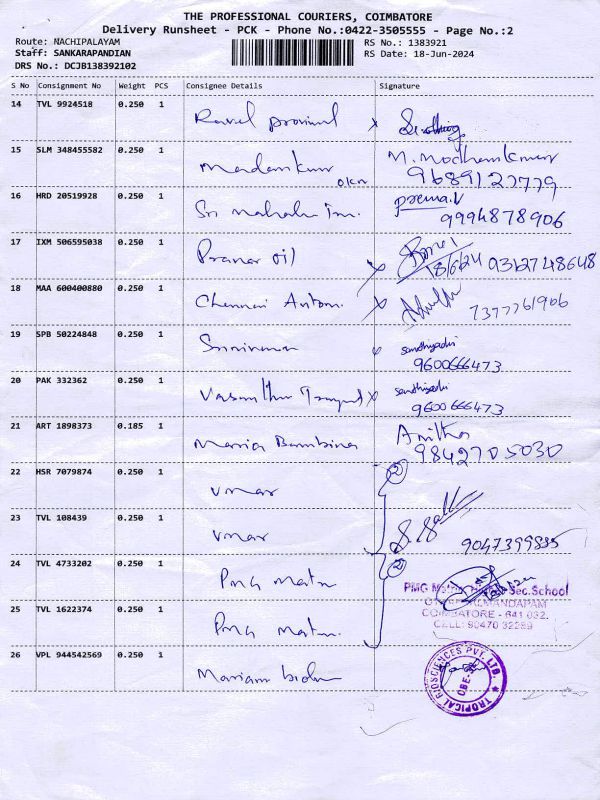 THE PROFESSIONAL COURIERS, COIMBATORE
Delivery Runsheet - PCK - Phone No.:0422-3505555 - Page No.:2
Route: NACHIPALAYAM RS No.: 1383921
Staff: SANKARAPANDIAN RS Date: 18-Jun-2024
DRS No.: DCJB138392102
S No Consignment No Weight PCS Consignee Details Signature
14 TVL 9924518 0.250 1
15 SLM 348455582 0.250 1 Madankumar M. Modhankumar
9689127779
16 HRD 20519928 0.250 1 Sri Mahalu prema.V
9994878906
17 IXM 506595038 0.250 1 Pranav Oil
18/6/24 9312748648
18 MAA 600400880 0.250 1 Chennai Autom.
7377761906
19 SPB 50224848 0.250 1 Srinivasan sandhiyadri
9600666473
20 PAK 332362 0.250 1 sandhiyadri
9600666473
21 ART 1898373 0.185 1 Maria Bambina Anitha
9842705030
22 HSR 7079874 0.250 1 Umar 2
23 TVL 108439 0.250 1 Umar
9047399885
24 TVL 4733202 0.250 1 PMG Matn 2
PMG Sec.School
25 TVL 1622374 0.250 1 PMG Matn.
COIMBATORE - 641 032.
CELL: 90470 32289
26 VPL 944542569 0.250 1 Mariam
TROPICAL BIOSCIENCES PVT. LTD.
CBE-